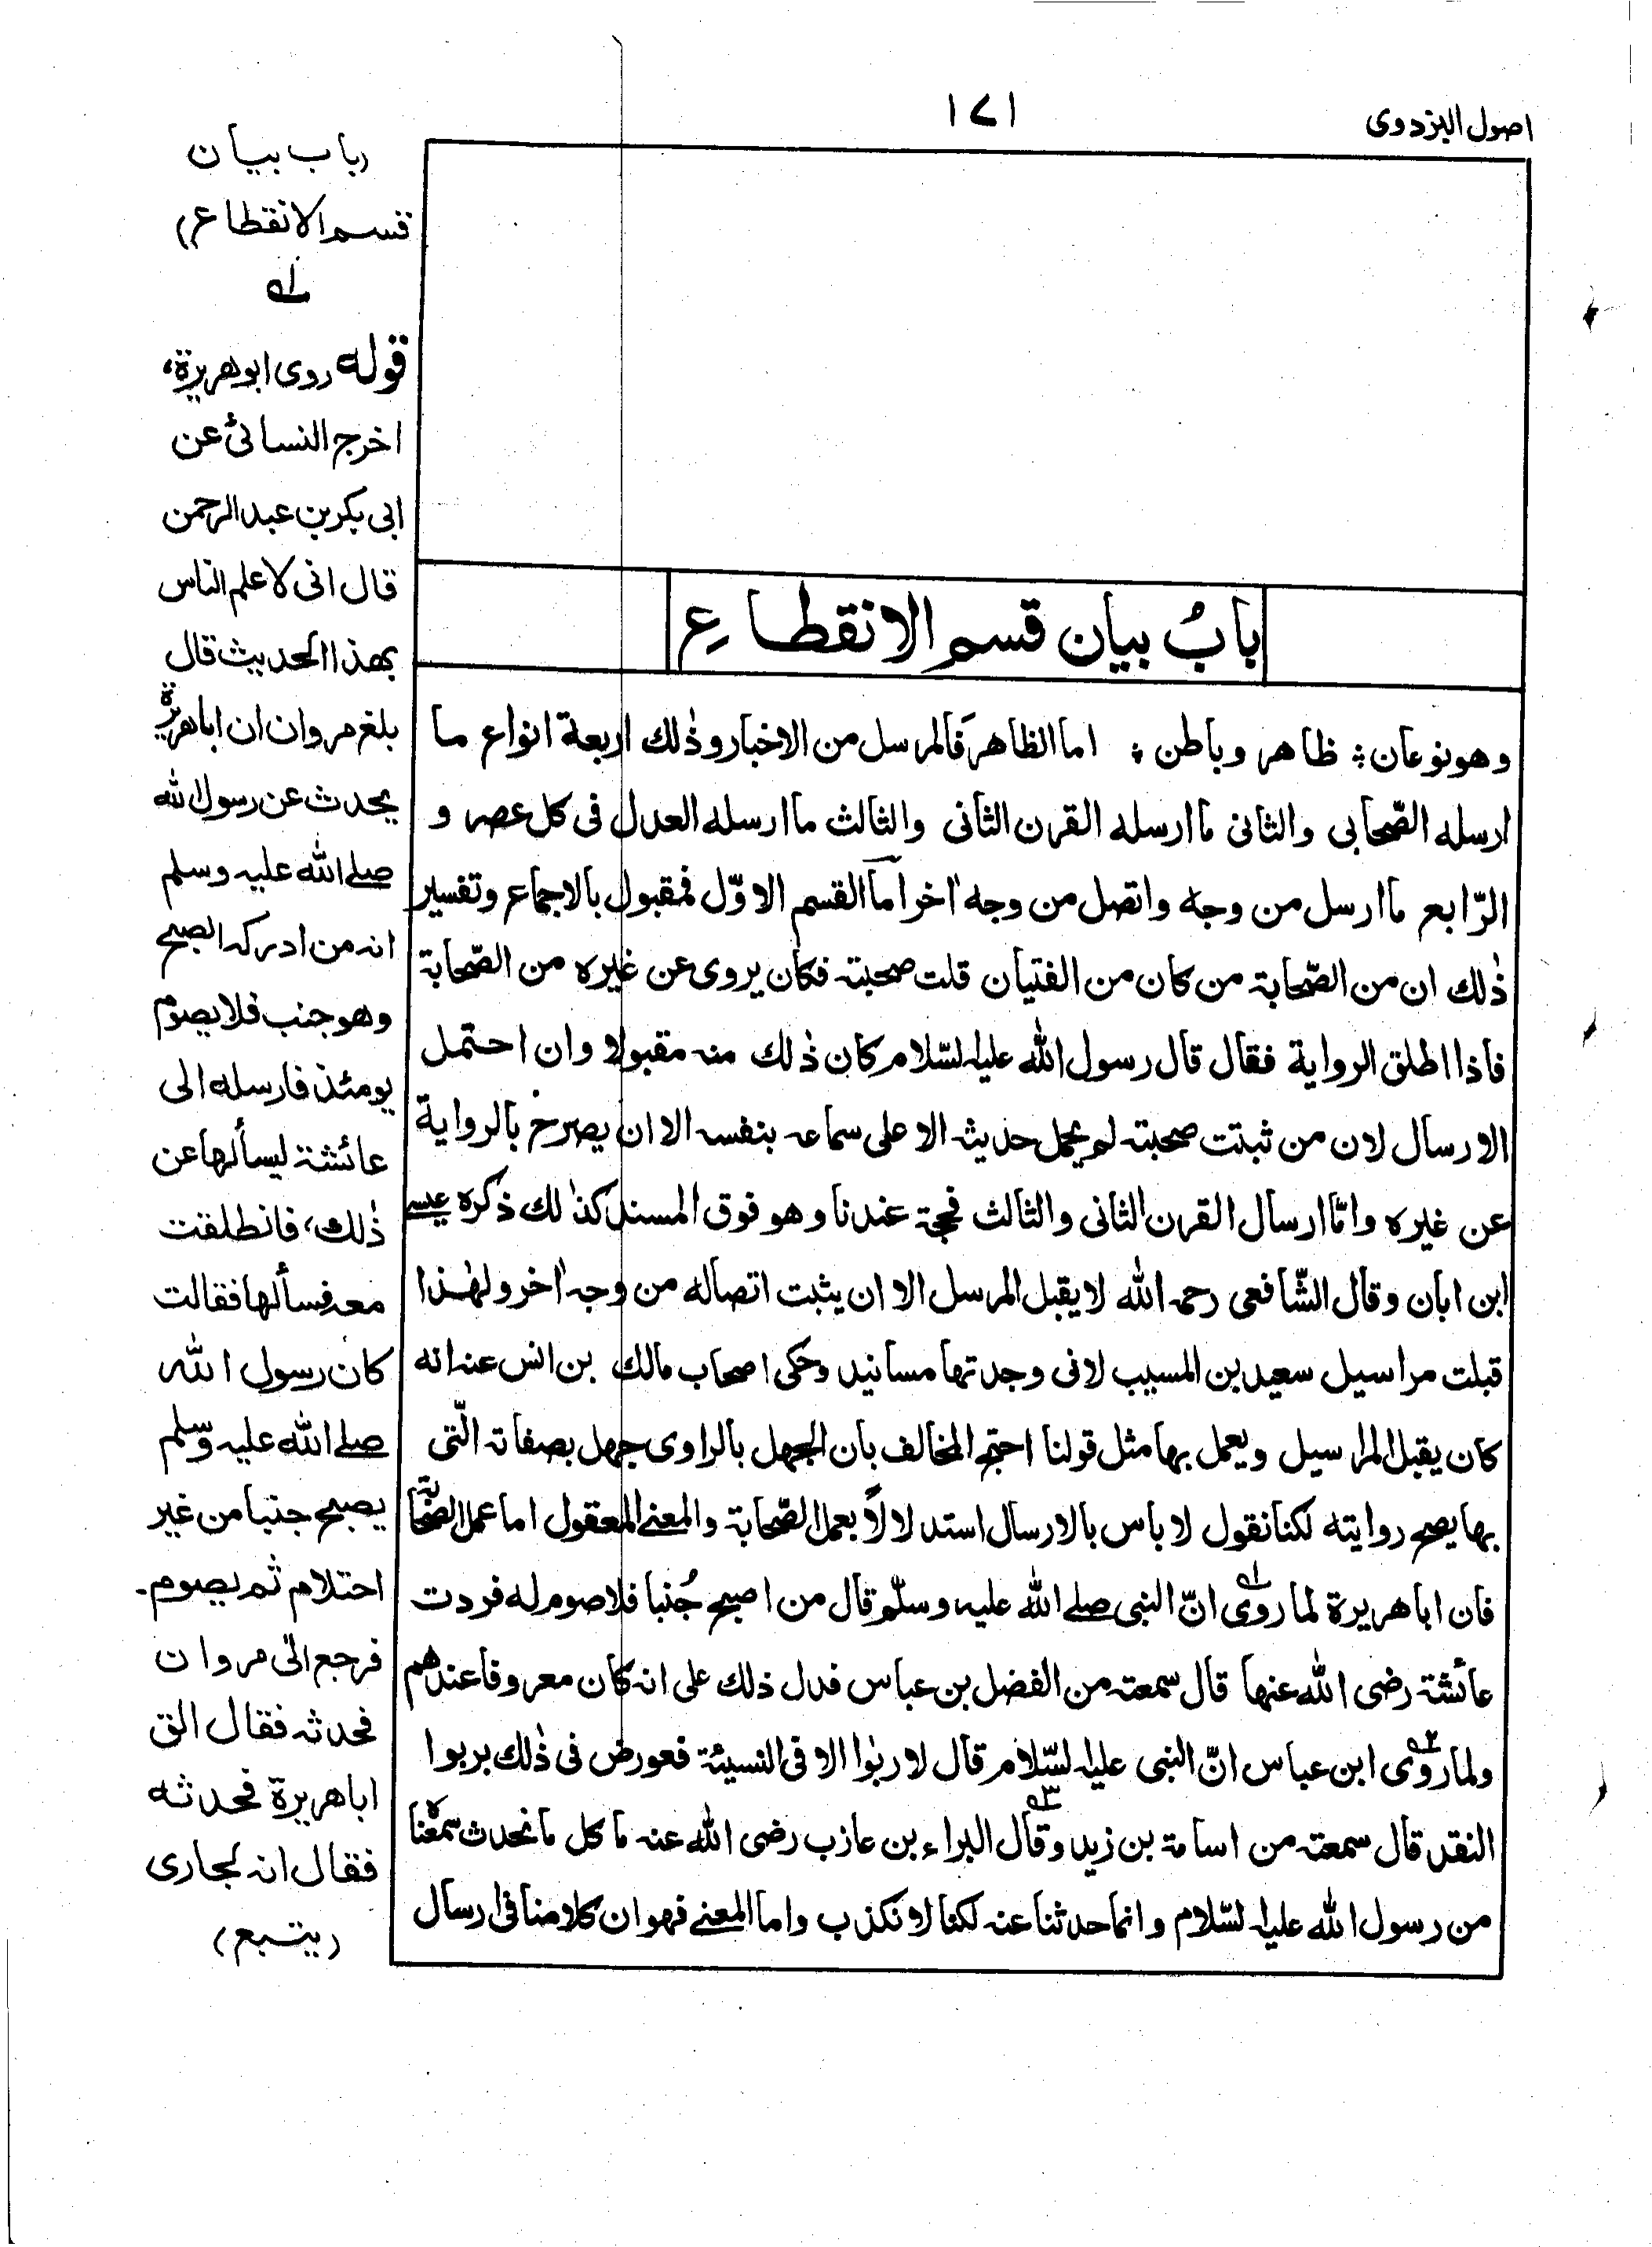 اصول البزدوی
۱۷۱
بابُ بیان قسم الانقطاع
وهو نوعان ؛ ظاهر وباطن ؛ اما الظاهر فالمرسل من الاخبار وذٰلك اربعة انواع ما
ارسله الصّحابی والثانی ما ارسله القرن الثانی والثالث ما ارسله العدل فی كل عصر و
الرّابع ما ارسل من وجه واتصل من وجه اٰخر اما القسم الاوّل فمقبول بالاجماع وتفسیر
ذٰلك ان من الصّحابة من كان من الفتیان قلت صحبته فكان یروی عن غیره من الصّحابة
فاذا اطلق الروایة فقال قال رسول الله علیه السّلام كان ذٰلك منه مقبولا وان احتمل
الارسال لان من ثبتت صحبته لم یحمل حدیثه الا علی سماعه بنفسه الا ان یصرح بالروایة
عن غیره وامّا ارسال القرن الثانی والثالث فحجة عندنا وهو فوق المسند كذٰلك ذكره عیسے
ابن ابان وقال الشّافعی رحمه الله لا یقبل المرسل الا ان یثبت اتصاله من وجه اٰخر ولهٰذا
قبلت مراسیل سعید بن المسیب لانی وجدتها مسانید وحكی اصحاب مالك بن انس عنه انه
كان یقبل المراسیل ویعمل بها مثل قولنا احتج المخالف بان الجهل بالراوی جهل بصفاته الّتی
بها یصح روایته لكنا نقول لا باس بالارسال استدلالًا بعمل الصّحابة والمعنے المعقول اما عمل الصّحابة
فان اباهریرة لما روی ۱ه انّ النبی صلے الله علیه وسلّم قال من اصبح جُنبا فلا صوم له فردت
عائشة رضی الله عنها قال سمعته من الفضل بن عباس فدل ذلك علی انه كان معروفا عندهم
ولما روی ۲ه ابن عباس انّ النبی علیه السّلام قال لا ربٰوا الا فی النسیئة فعورض فی ذٰلك بربوا
النقد قال سمعته من اسامة بن زید وقال ۳ه البراء بن عازب رضی الله عنه ما كل ما نحدث سمعناه
من رسول الله علیه السّلام وانما حدثنا عنه لكنا لا نكذب واما المعنے فهو ان كلامنا فی ارسال
(باب بیان
قسم الانقطاع)
۱ه
قوله روی ابوهریرة،
اخرج النسائی عن
ابی بكر بن عبدالرحمن
قال انی لاعلم الناس
بهذا الحدیث قال
بلغ مروان ان اباهریرة
یحدث عن رسول الله
صلے الله علیه وسلم
انه من ادركه الصبح
وهو جنب فلا یصوم
یومئذ فارسله الی
عائشة لیسألها عن
ذٰلك، فانطلقت
معه فسألها فقالت
كان رسول الله
صلے الله علیه وسلم
یصبح جنبا من غیر
احتلام ثم یصوم۔
فرجع الی مروان
فحدثه فقال الق
اباهریرة فحدثه
فقال انه لجاری
(یتبع)